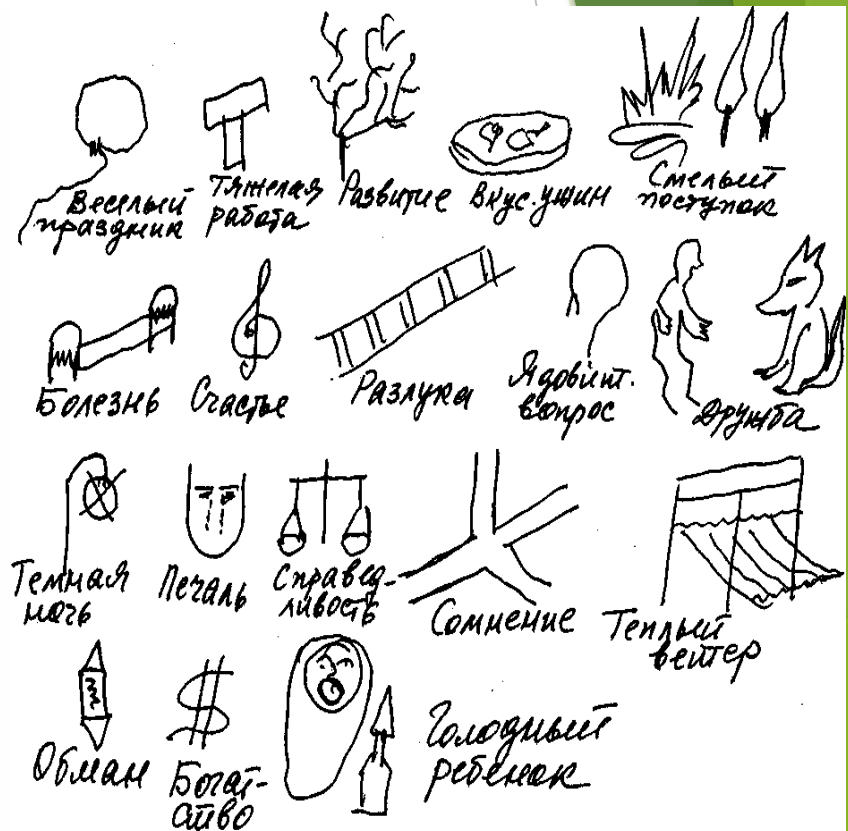 Веселый
праздник
Тяжелая
работа
Развитие
Вкус. ужин
Смелый
поступок
Болезнь
Счастье
Разлука
Ядовит.
вопрос
Дружба
Темная
ночь
Печаль
Справед-
ливость
Сомнение
Теплый
ветер
Обман
$
Богат-
ство
Голодный
ребенок